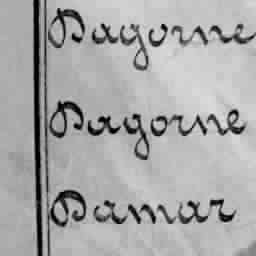 Dagorne
Dagorne
Damar